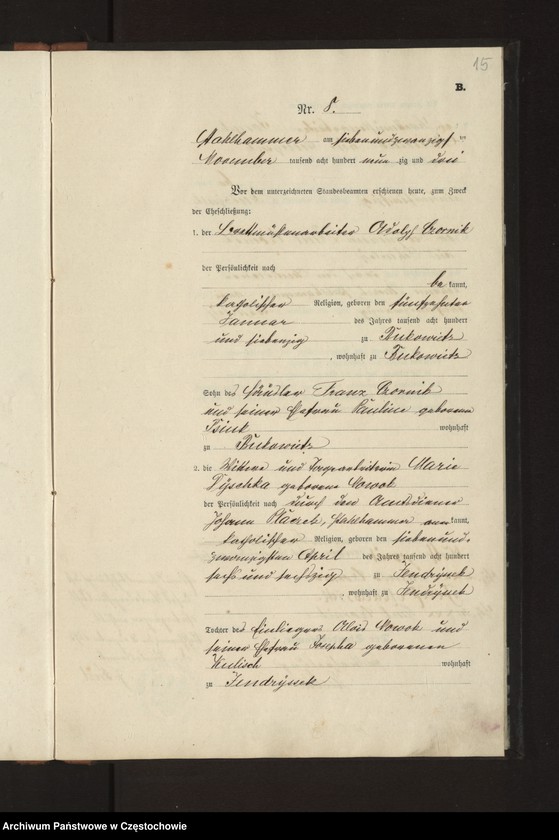 15
B.
Nr. 8.
Stahlhammer am siebenundzwanzigsten
November tausend acht hundert neunzig und drei
Vor dem unterzeichneten Standesbeamten erschienen heute, zum Zweck
der Eheschließung:
1. der Brettmühlenarbeiter Adolf Czornik
der Persönlichkeit nach
bekannt,
katholischer Religion, geboren den fünfzehnten
Januar des Jahres tausend acht hundert
und siebenzig zu Rukowietz
, wohnhaft zu Rukowietz
Sohn des Häusler Franz Czornik
und seiner Ehefrau Pauline geborene
wohnhaft
zu Rukowietz
2. die Wittwe und Marie
geborene Nowok
der Persönlichkeit nach durch den Amtsdiener
Johann Stahlhammer anerkannt,
katholischer Religion, geboren den siebenund-
zwanzigsten April des Jahres tausend acht hundert
sechs und sechszig zu Jendrysek
, wohnhaft zu Jendrysek
Tochter des Einlieger Alois Nowok und
seiner Ehefrau Josepha geborenen
Kulisch wohnhaft
zu Jendrysek
Archiwum Państwowe w Częstochowie